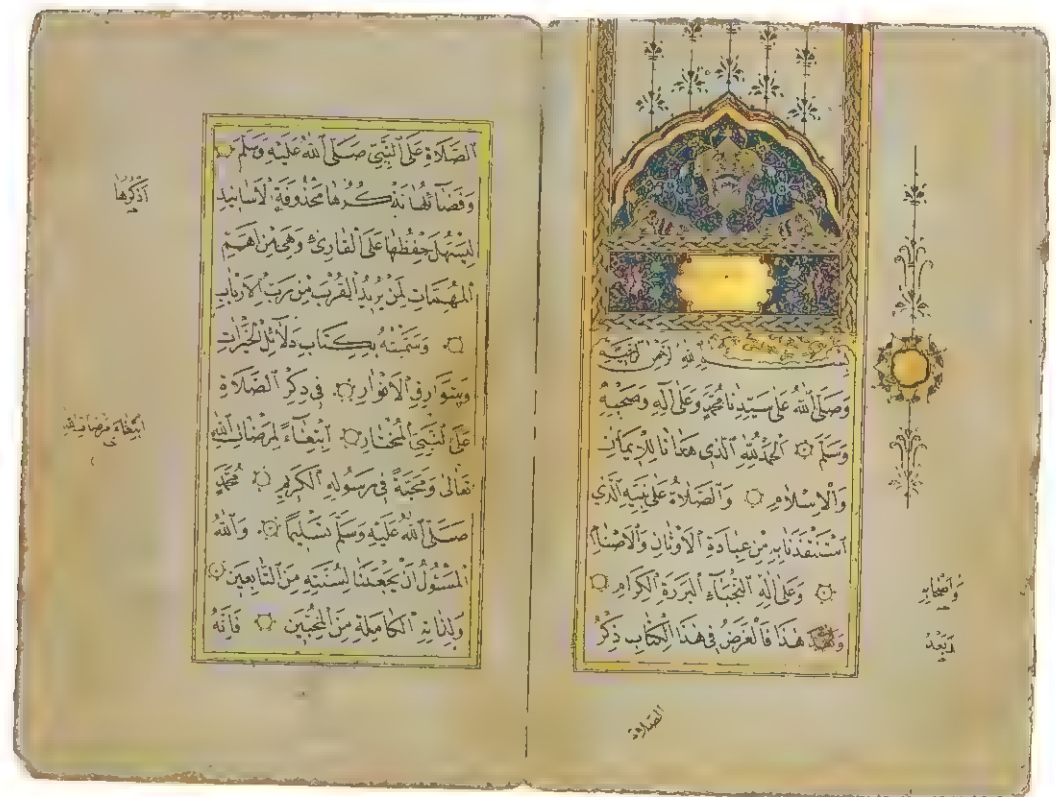 بسم الله الرحمن الرحيم
وَصَلَّى اللهُ عَلَى سَيِّدِنَا مُحَمَّدٍ وَعَلَى آلِهِ وَصَحْبِهِ
وَسَلَّمَ اَلْحَمْدُ لِلّٰهِ الَّذِي هَدَانَا لِلْاِيمَانِ
وَالْاِسْلَامِ وَالصَّلَاةُ عَلَى نَبِيِّهِ الَّذِي
اسْتَنْقَذَنَا بِهِ مِنْ عِبَادَةِ الْاَوْثَانِ وَالْاَصْنَامِ
وَعَلَى آلِهِ النُّجَبَاءِ الْبَرَرَةِ الْكِرَامِ
هٰذَا فَالْغَرَضُ فِي هٰذَا الْكِتَابِ ذِكْرُ
وَاَصْحَابِهِ
بَعْدَ
الصلاة
الصَّلَاةِ عَلَى النَّبِيِّ صَلَّى اللهُ عَلَيْهِ وَسَلَّمَ
وَفَضَائِلُهَا نَذْكُرُهَا مَحْذُوفَةَ الْاَسَانِيدِ
لِيَسْهُلَ حِفْظُهَا عَلَى الْقَارِئِ وَهِيَ مِنْ اَهَمِّ
الْمُهِمَّاتِ لِمَنْ يُرِيدُ الْقُرْبَ مِنْ رَبِّ الْاَرْبَابِ
وَسَمَّيْتُهُ بِكِتَابِ دَلَائِلِ الْخَيْرَاتِ
وَشَوَارِقِ الْاَنْوَارِ فِي ذِكْرِ الصَّلَاةِ
عَلَى النَّبِيِّ الْمُخْتَارِ ابْتِغَاءً لِمَرْضَاتِ اللهِ
تَعَالَى وَمَحَبَّةً فِي رَسُولِهِ الْكَرِيمِ مُحَمَّدٍ
صَلَّى اللهُ عَلَيْهِ وَسَلَّمَ تَسْلِيمًا وَاللهُ
الْمَسْئُولُ اَنْ يَجْعَلَنَا لِسُنَّتِهِ مِنَ التَّابِعِينَ
وَلِذَاتِهِ الْكَامِلَةِ مِنَ الْمُحِبِّينَ فَاِنَّهُ
اَذْكُرُهَا
ابْتِغَاءَ مَرْضَاتِ الله